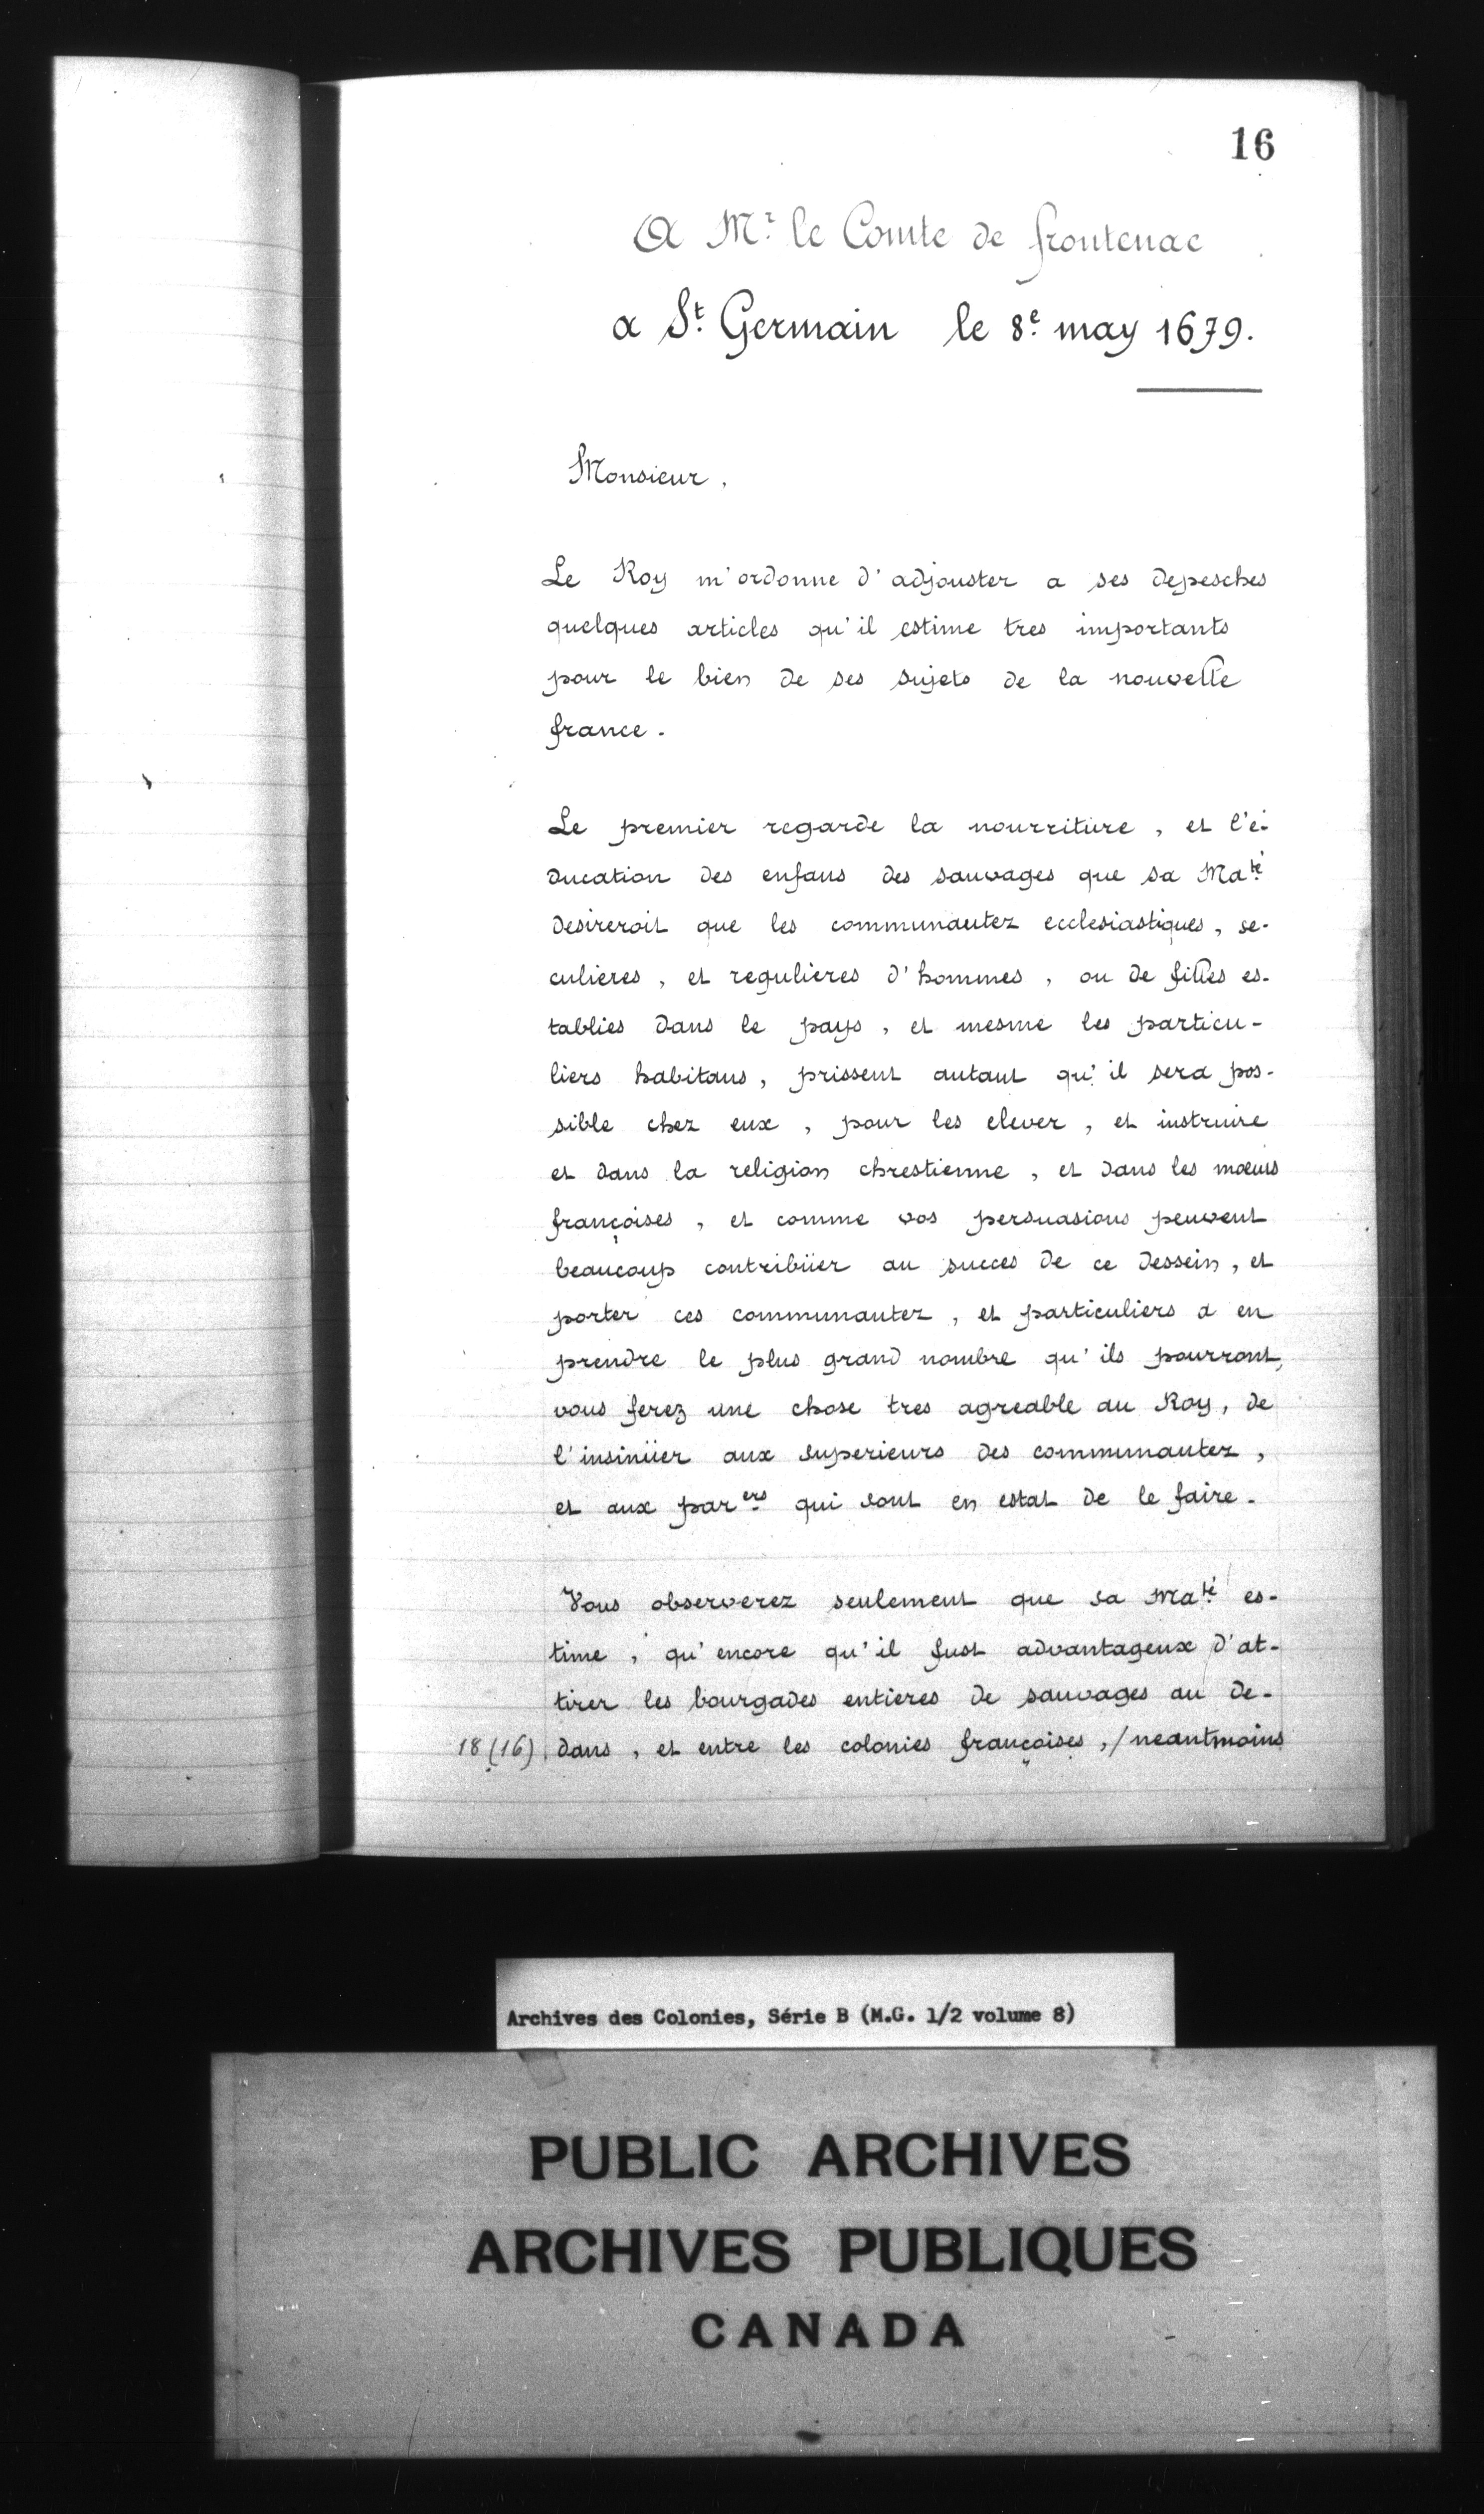 16
A Mr. le Comte de frontenac
a St. Germain le 8e. may 1679.
Monsieur,
Le Roy m'ordonne d'adjouster a ses depesches
quelques articles qu'il estime tres importants
pour le bien de ses sujets de la nouvelle
france.
Le premier regarde la nourriture, et l'é-
ducation des enfans des sauvages que sa Maté.
desireroit que les communautez ecclesiastiques, se-
culieres, et regulieres d'hommes, ou de filles es-
tablies dans le pays, et mesme les particu-
liers habitans, prissent autant qu'il sera pos-
sible chez eux, pour les elever, et instruire
et dans la religion chrestienne, et dans les mœurs
françoises, et comme vos persuasions peuvent
beaucoup contribüer au succes de ce dessein, et
porter ces communautez, et particuliers a en
prendre le plus grand nombre qu'ils pourront,
vous ferez une chose tres agreable au Roy, de
l'insinüer aux superieurs des communautez,
et aux par.ers qui sont en estat de le faire.
Vous observerez seulement que sa Maté. es-
time, qu'encore qu'il fust advantageux d'at-
tirer les bourgades entieres de sauvages au de-
18 (16) dans, et entre les colonies françoises, / neantmoins
Archives des Colonies, Série B (M.G. 1/2 volume 8)
PUBLIC ARCHIVES
ARCHIVES PUBLIQUES
CANADA